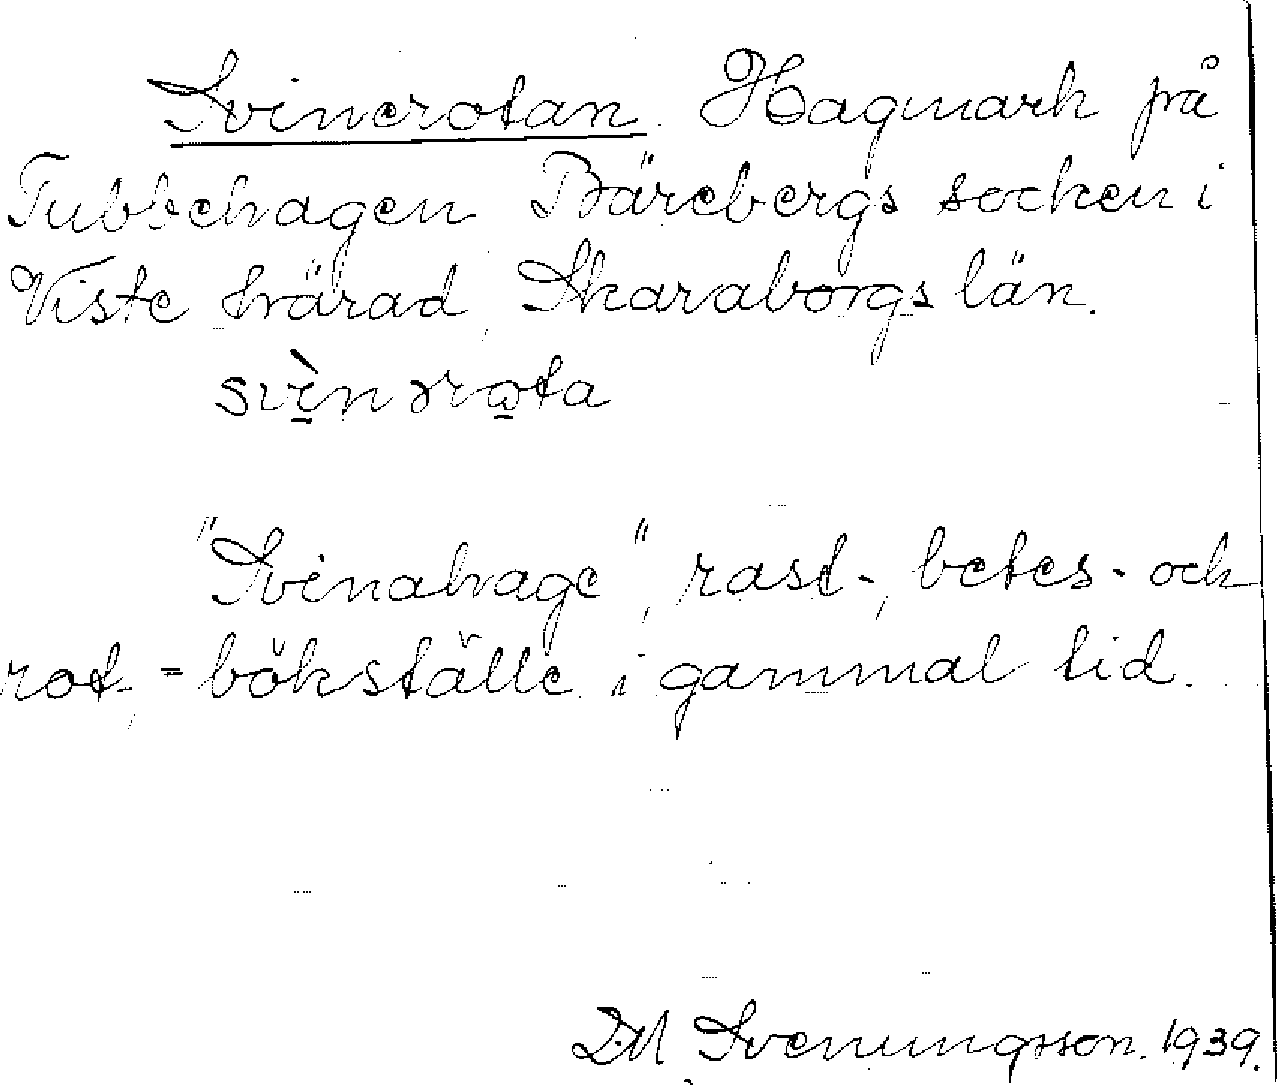 Svinerotan. Hagmark på
Tubbehagen Bärebergs socken i
Viste härad, Skaraborgs län.
svìnərɷta
"Svinahage", rast-, betes- och
rot-bökställe i gammal tid.
D.M. Svenungsson. 1939.